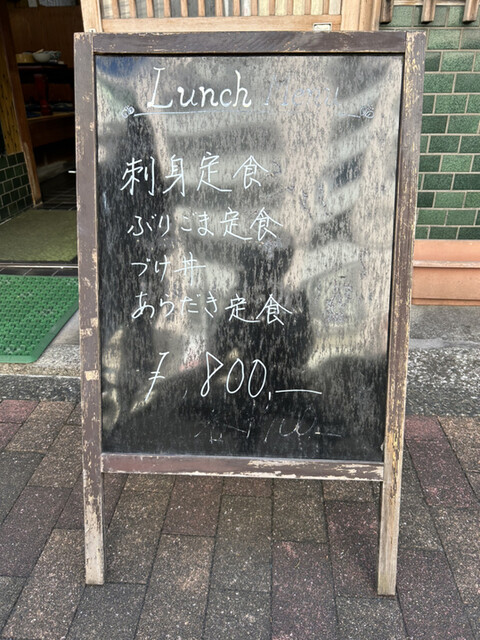 Lunch Menu
刺身定食
ぶりごま定食
づけ丼
あらだき定食
¥ 800.—